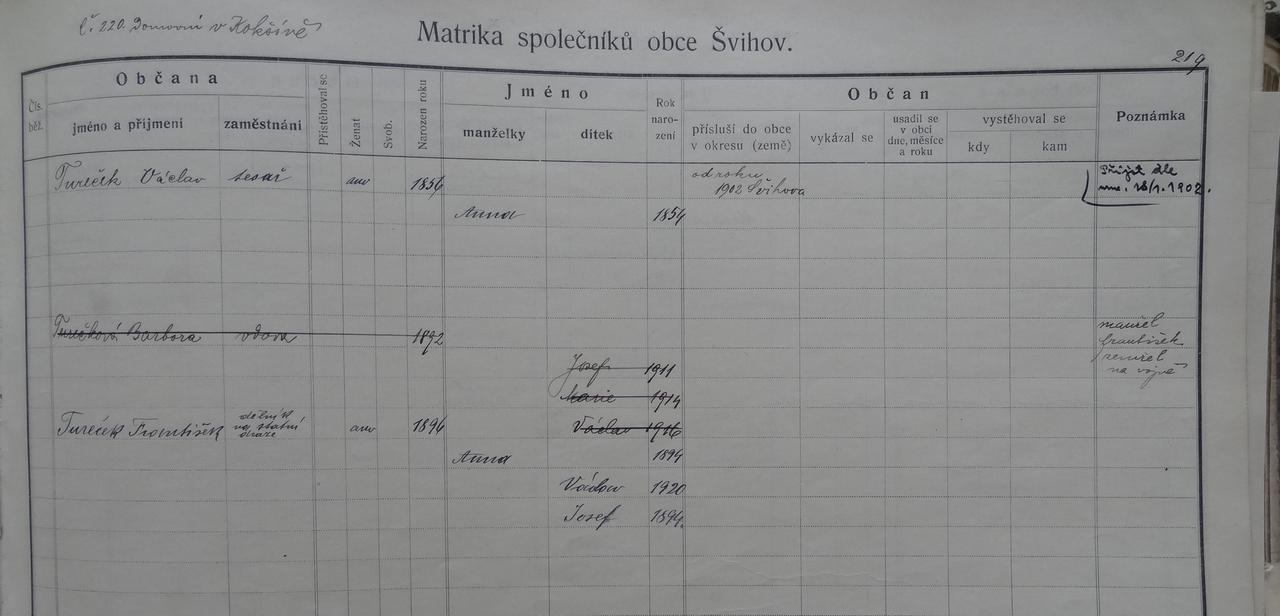 č. 220. Domovní v Kokšíně
Matrika společníků obce Švihov.
219
Občana
Jméno
Občan
Čís. běž.
jméno a příjmení
zaměstnání
Přistěhoval se
Ženat
Svob.
Narozen roku
manželky
dítek
Rok naro- zení
přísluší do obce v okresu (země)
vykázal se
usadil se v obci dne, měsíce a roku
vystěhoval se
kdy
kam
Poznámka
Tureček Václav tesař ano 1856 od roku 1902 Švihova Přijat dle 1902.
Anna 1854
Turečková Barbora vdova 1892 manžel František zemřel na vojně
Josef 1911
Marie 1914
Tureček František dělník na státní dráze ano 1896 Václav 1916
Anna 1894
Václav 1920
Josef 1894